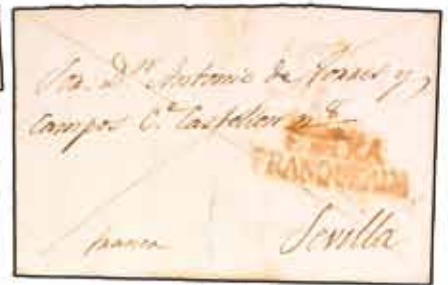 Sor. Dn. Antonio de Torres y
Campos Ce. Castellon nº
FRANQUEADA
franca
Sevilla